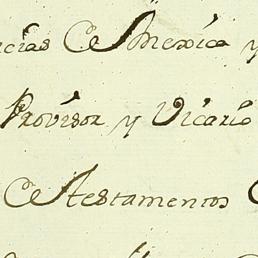 cias de Mexico y
Provisor y Vicario
de testamentos